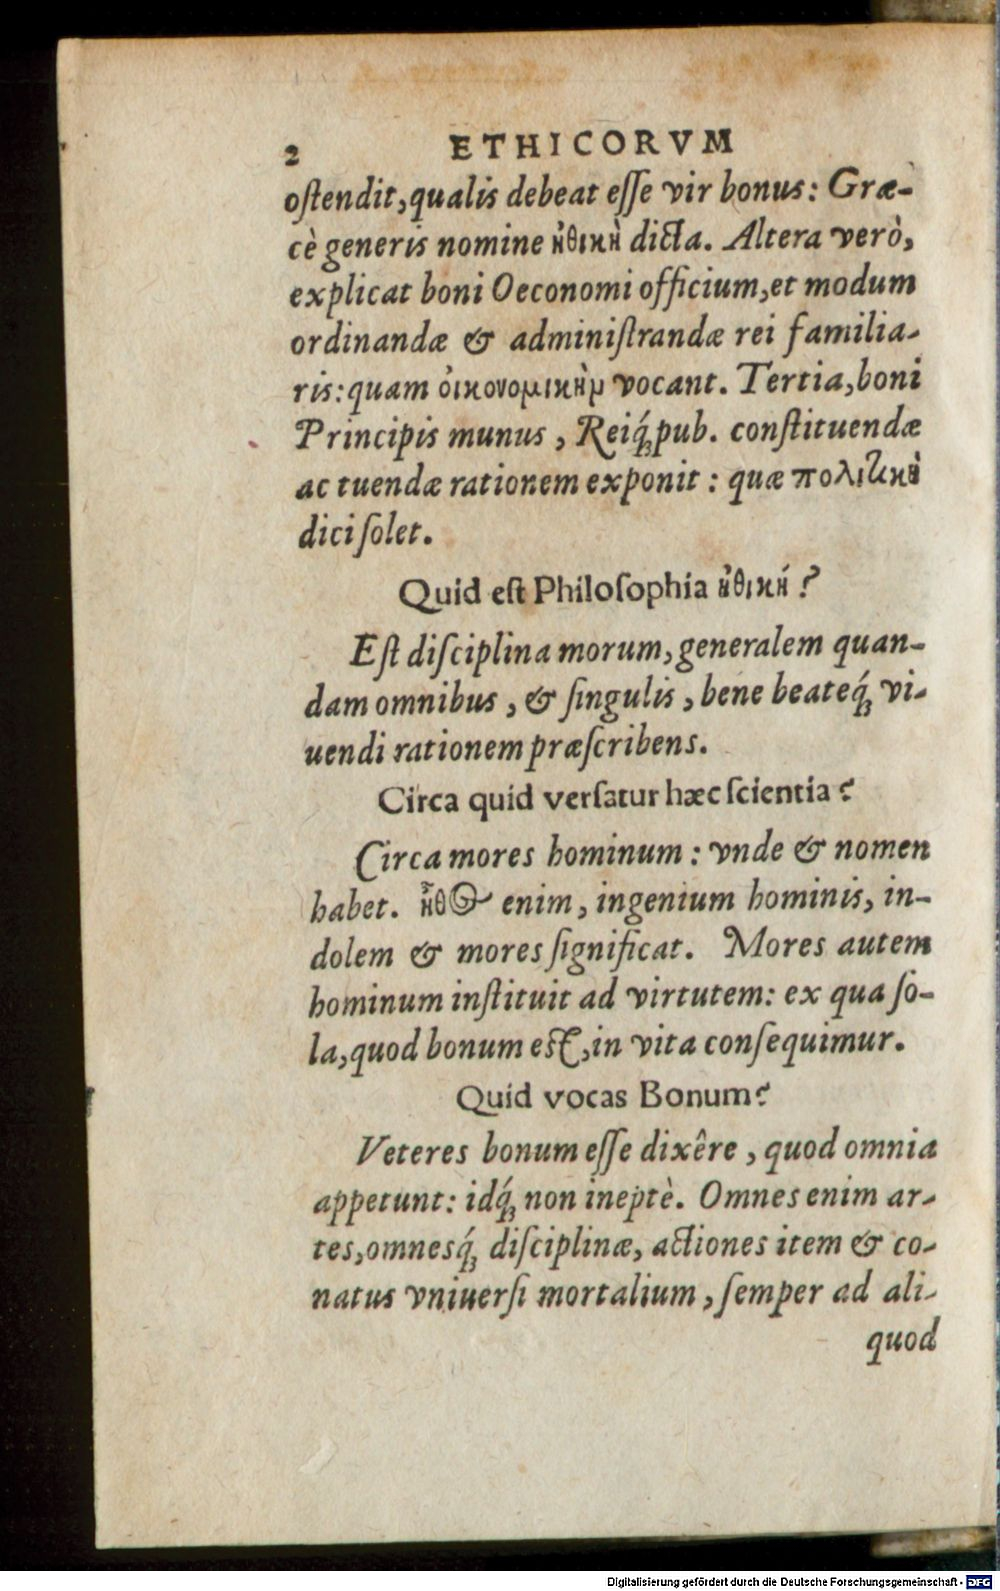 2 ETHICORVM
oſtendit,qualis debeat eſſe vir bonus: Græ-
cè generis nomine ἠθικὴ dicta. Altera verò,
explicat boni Oeconomi officium,et modum
ordinandæ & adminiſtrandæ rei familia-
ris:quam οἰκονομικὴμ vocant. Tertia,boni
Principis munus , Reiq́; pub. conſtituendæ
ac tuendæ rationem exponit : quæ πολιτικὴ
dici ſolet.
Quid eſt Philoſophia ἠθική ?
Eſt diſciplina morum,generalem quan-
dam omnibus , & ſingulis , bene beateq́; vi-
uendi rationem præſcribens.
Circa quid verſatur hæc ſcientia?
Circa mores hominum : vnde & nomen
habet. ἦθος enim, ingenium hominis, in-
dolem & mores ſignificat. Mores autem
hominum inſtituit ad virtutem: ex qua ſo-
la,quod bonum est,in vita conſequimur.
Quid vocas Bonum?
Veteres bonum eſſe dixêre , quod omnia
appetunt: idq́; non ineptè. Omnes enim ar-
tes,omnesq́; diſciplinæ, actiones item & co-
natus vniuerſi mortalium , ſemper ad ali-
quod
Digitalisierung gefördert durch die Deutsche Forschungsgemeinschaft - DFG